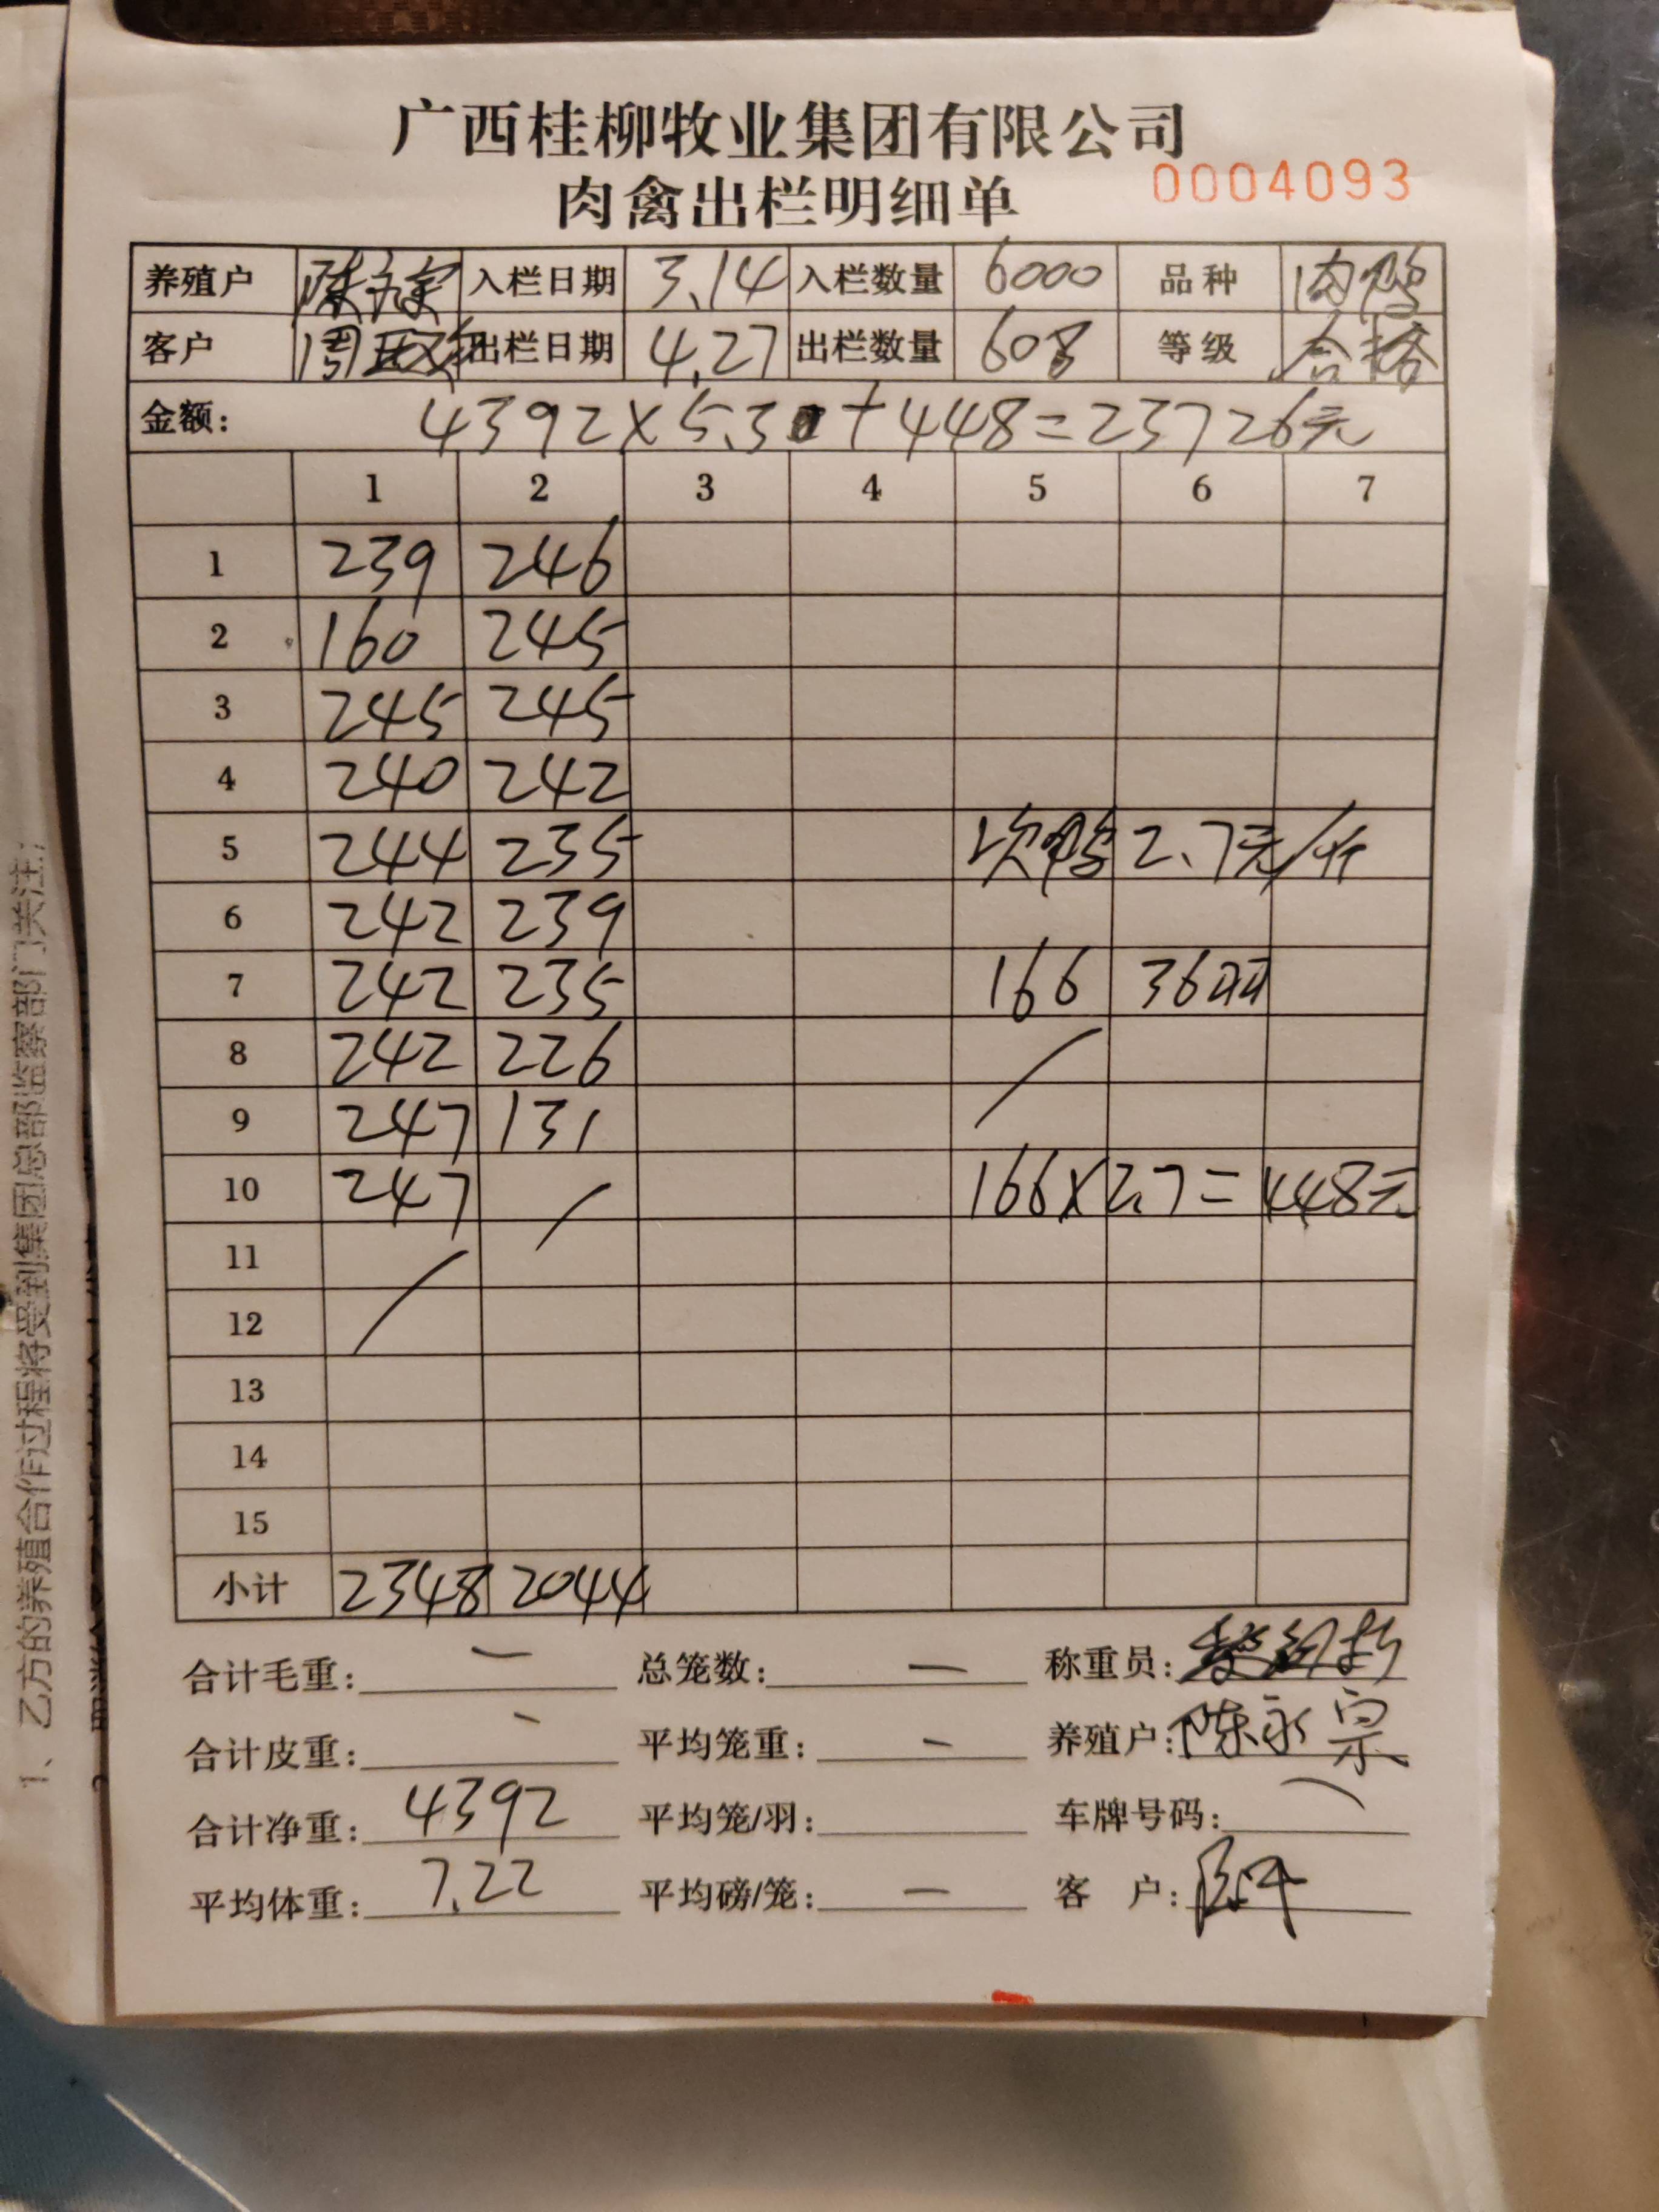 广西桂柳牧业集团有限公司
肉禽出栏明细单 0004093
养殖户 陈永宗 入栏日期 3.14 入栏数量 6000 品种 肉鸭
客户 出栏日期 4.27 出栏数量 608 等级 合格
金额: 4392×5.30+448=23726元
1 2 3 4 5 6 7
1 239 246
2 160 245
3 245 245
4 240 242
5 244 235 次鸭 2.7元/斤
6 242 239
7 242 235 166 36只
8 242 226
9 247 131
10 247 166×2.7=448元
11
12
13
14
15
小计 2348 2044
合计毛重: 一 总笼数: 一 称重员:
合计皮重: 一 平均笼重: 一 养殖户: 陈永宗
合计净重: 4392 平均笼/羽: 车牌号码: 一
平均体重: 7.22 平均磅/笼: 一 客 户:
1、乙方的养殖合作过程将受到集团总部监察部门关注;